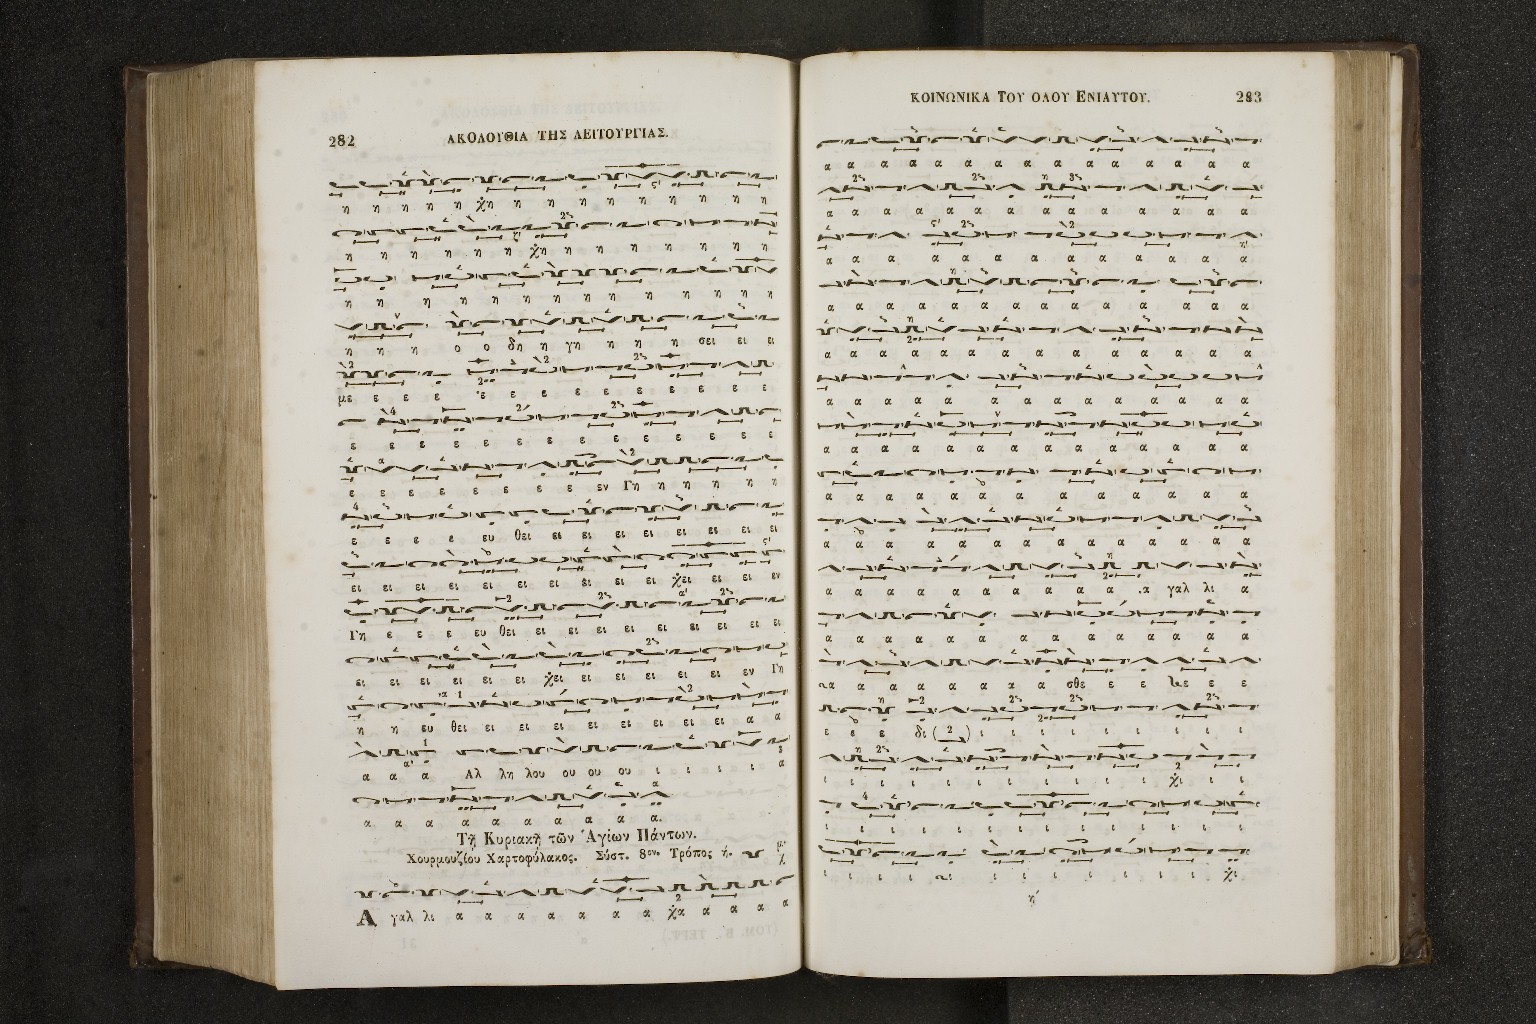 282 ΑΚΟΛΟΥΘΙΑ ΤΗΣ ΛΕΙΤΟΥΡΓΙΑΣ.
η η η η η χη η η η η η η η η η
η η η η η η χη η η η η η η η
η η η η η η η η η η η η η
η η η ο ο δη η γη η η η σει ει ει
με ε ε ε ε ε ε ε ε ε ε ε ε ε
ε ε ε ε ε ε ε ε ε ε ε ε ε ε
ε ε ε ε ε ε ε ε εν Γη η η η η η
ε ε ε ε ευ θει ει ει ει ει ει ει ει ει
ει ει ει ει ει ει ει ει ει ει χει ει ει εν
Γη ε ε ε ευ θει ει ει ει ει ει ει ει ει ει
ει ει ει ει ει ει χει ει ει ει ει ει εν Γη
η η ευ θει ει ει ει ει ει ει ει ει α α
α α α Αλ λη λου ου ου ου ι ι ι ι α
α α α α α α α α α α.
Τῇ Κυριακῇ τῶν Ἁγίων Πάντων.
Χουρμουζίου Χαρτοφύλακος. Σύστ. 8ον. Τρόπος ή.
Α γαλ λι α α α α α α α χα α α α α
ΚΟΙΝΩΝΙΚΑ ΤΟΥ ΟΛΟΥ ΕΝΙΑΥΤΟΥ. 283
α α α α α α α α α α α α α α α
α α α α α α α α α α α α α α
α α α α α α α α α α α α
α α α α α α α α α α α α α
α α α α α α α α α α α α α α
α α α α α α α α α α α α α
α α α α α α α α α α α α α
α α α α α α α α α α α
α α α α α α α α α α α α α
α α α α α α α α α α γαλ λι α
α α α α α α α α α α α α
α α α α α α α α σθε ε ε ε ε
ε ε ε δι ι ι ι ι ι ι ι ι ι
ι ι ι ι ι ι ι ι ι ι χι ι ι
ι ι ι ι ι ι ι ι ι ι ι ι ι
ι ι ι ι ι ι ι ι ι ι ι χι